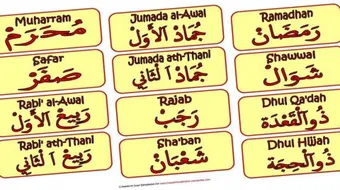 Muharram
مُحَرَّمْ
Safar
صَفَرْ
Rabi' al-Awal
رَبِيعُ الْأَوَّلْ
Rabi' ath-Thani
رَبِيعُ الثَّانِي
Jumada al-Awal
جُمَادُ الْأَوَّلْ
Jumada ath-Thani
جُمَادُ الثَّانِي
Rajab
رَجَبْ
Sha'ban
شَعْبَانْ
Ramadhan
رَمَضَانْ
Shawwal
شَوَالْ
Dhul Qa'dah
ذُوالْقَعْدَة
Dhul Hijjah
ذُوالْحِجَّة